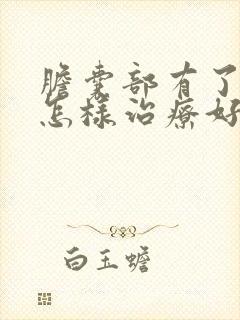 膽囊部有了
怎樣治療好
白玉蟾